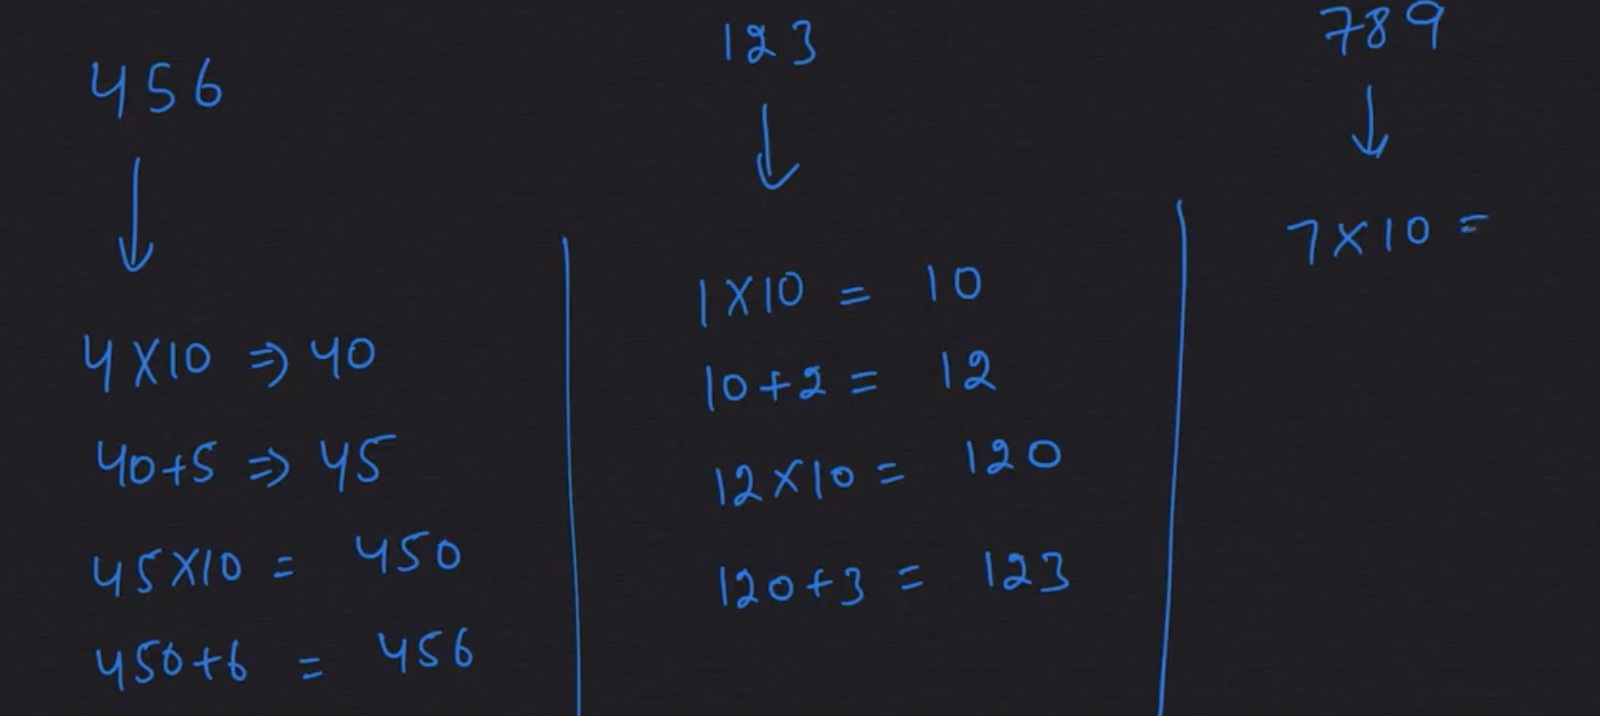 456
4X10 ⇒ 40
40+5 ⇒ 45
45X10 = 450
450+6 = 456
123
1X10 = 10
10+2 = 12
12X10 = 120
120+3 = 123
789
7X10 =